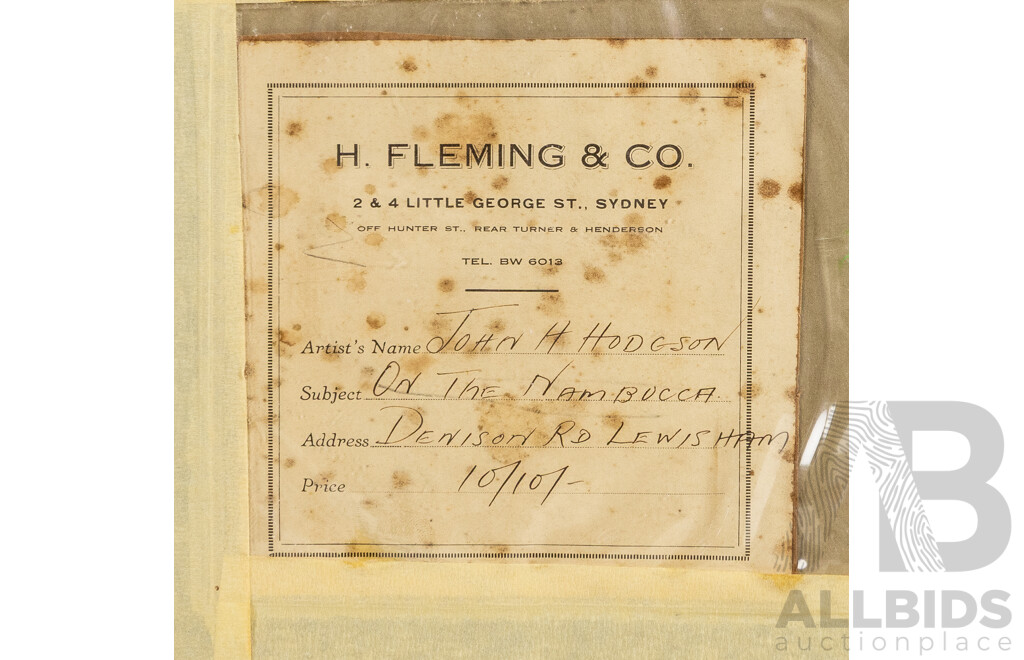 H. FLEMING & CO.
2 & 4 LITTLE GEORGE ST., SYDNEY
OFF HUNTER ST., REAR TURNER & HENDERSON
TEL. BW 6013
Artist's Name JOHN H HODGSON
Subject ON THE NAMBUCCA.
Address DENISON RD LEWISHAM
Price 10/10/-
AB
ALLBIDS
auctionplace